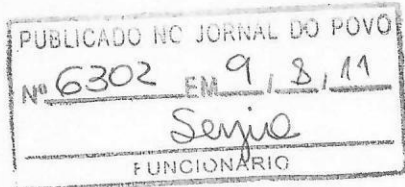 PUBLICADO NO JORNAL DO POVO
Nº 6302 EM 9 / 8 / 11
Sergio
FUNCIONÁRIO